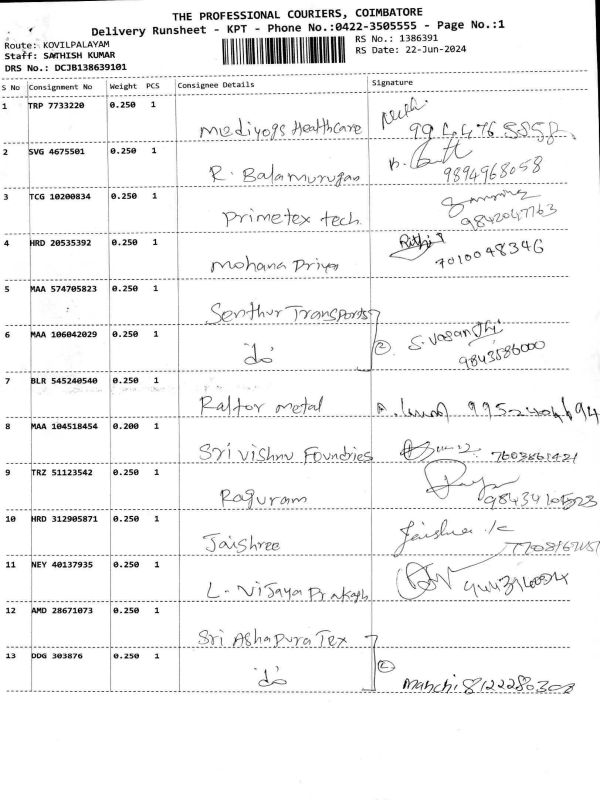 THE PROFESSIONAL COURIERS, COIMBATORE
Delivery Runsheet - KPT - Phone No.:0422-3505555 - Page No.:1
Route: KOVILPALAYAM RS No.: 1386391
Staff: SATHISH KUMAR RS Date: 22-Jun-2024
DRS No.: DCJB138639101
S No Consignment No Weight PCS Consignee Details Signature
1 TRP 7733220 0.250 1
Mediyogs Healthcare
2 SVG 4675501 0.250 1
R. Balamurugan 9894968058
3 TCG 10200834 0.250 1
Primetex tech. 9842047763
4 HRD 20535392 0.250 1
Mohana Priya 7010048346
5 MAA 574705823 0.250 1
Senthur Transports
6 MAA 106042029 0.250 1 2 S. Vasanthi
do 9843586000
7 BLR 545240540 0.250 1
Raftor metal
8 MAA 104518454 0.200 1
Sri Vishnu Foundries 7603861421
9 TRZ 51123542 0.250 1
Raguram
10 HRD 312905871 0.250 1
Jaishree Jaishree .k
11 NEY 40137935 0.250 1
L. Vijaya Prakash
12 AMD 28671073 0.250 1
Sri Ashapura Tex
13 DDG 303876 0.250 1 2
do 8122280302